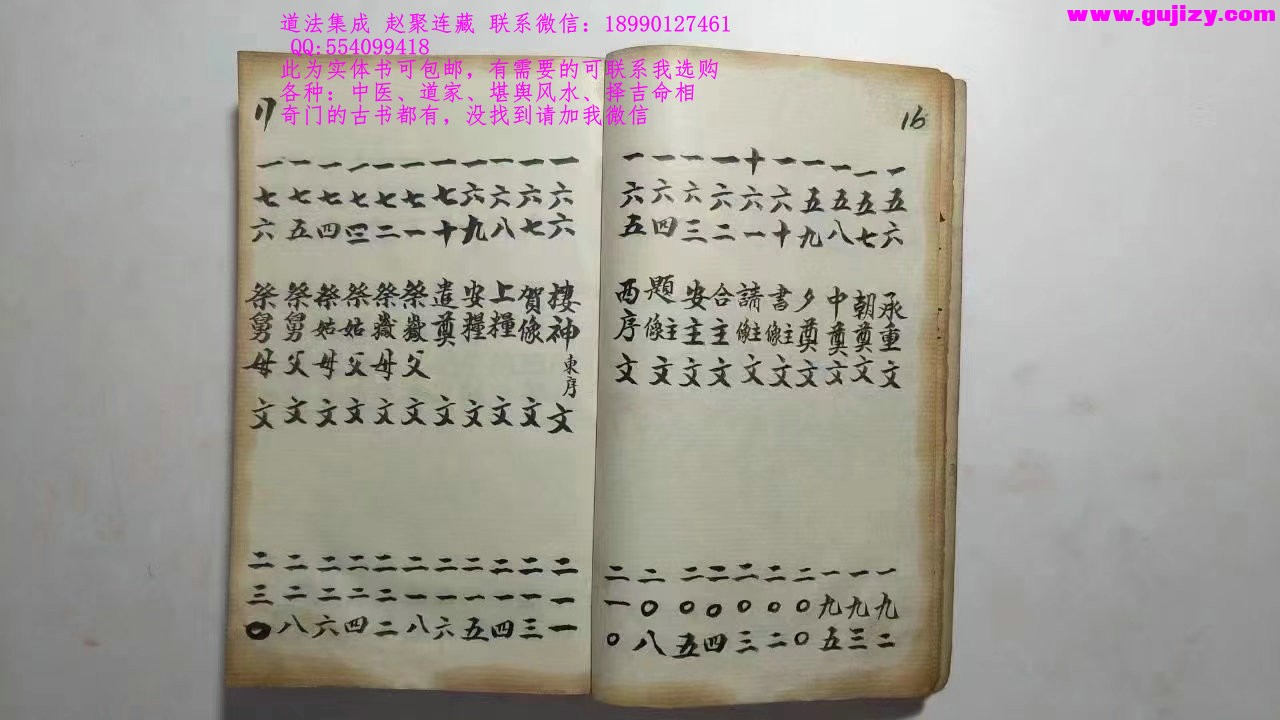 道法集成 赵聚连藏 联系微信：18990127461
QQ:554099418
此为实体书可包邮，有需要的可联系我选购
各种：中医、道家、堪舆风水、择吉命相
奇门的古书都有，没找到请加我微信
www.gujizy.com
16
一五六 承重文 一九二
一五七 朝奠文 一九三
一五八 中奠文 一九五
一五九 夕奠文 二〇〇
一六十 書主像文 二〇二
十六一 請主像文 二〇三
一六二 合主文 二〇四
一六三 安主文 二〇五
一六四 題主像文 二〇八
一六五 西序文 二一〇
17
一六六 捿神東序文 二一一
一六七 賀像文 二一三
一六八 上糧文 二一四
一六九 安糧文 二一五
一七十 遣奠文 二一六
一七一 祭嶽父文 二一八
一七二 祭嶽母文 二二二
一七三 祭姑父文 二二四
一七四 祭姑母文 二二六
一七五 祭舅父文 二二八
一七六 祭舅母文 二三〇